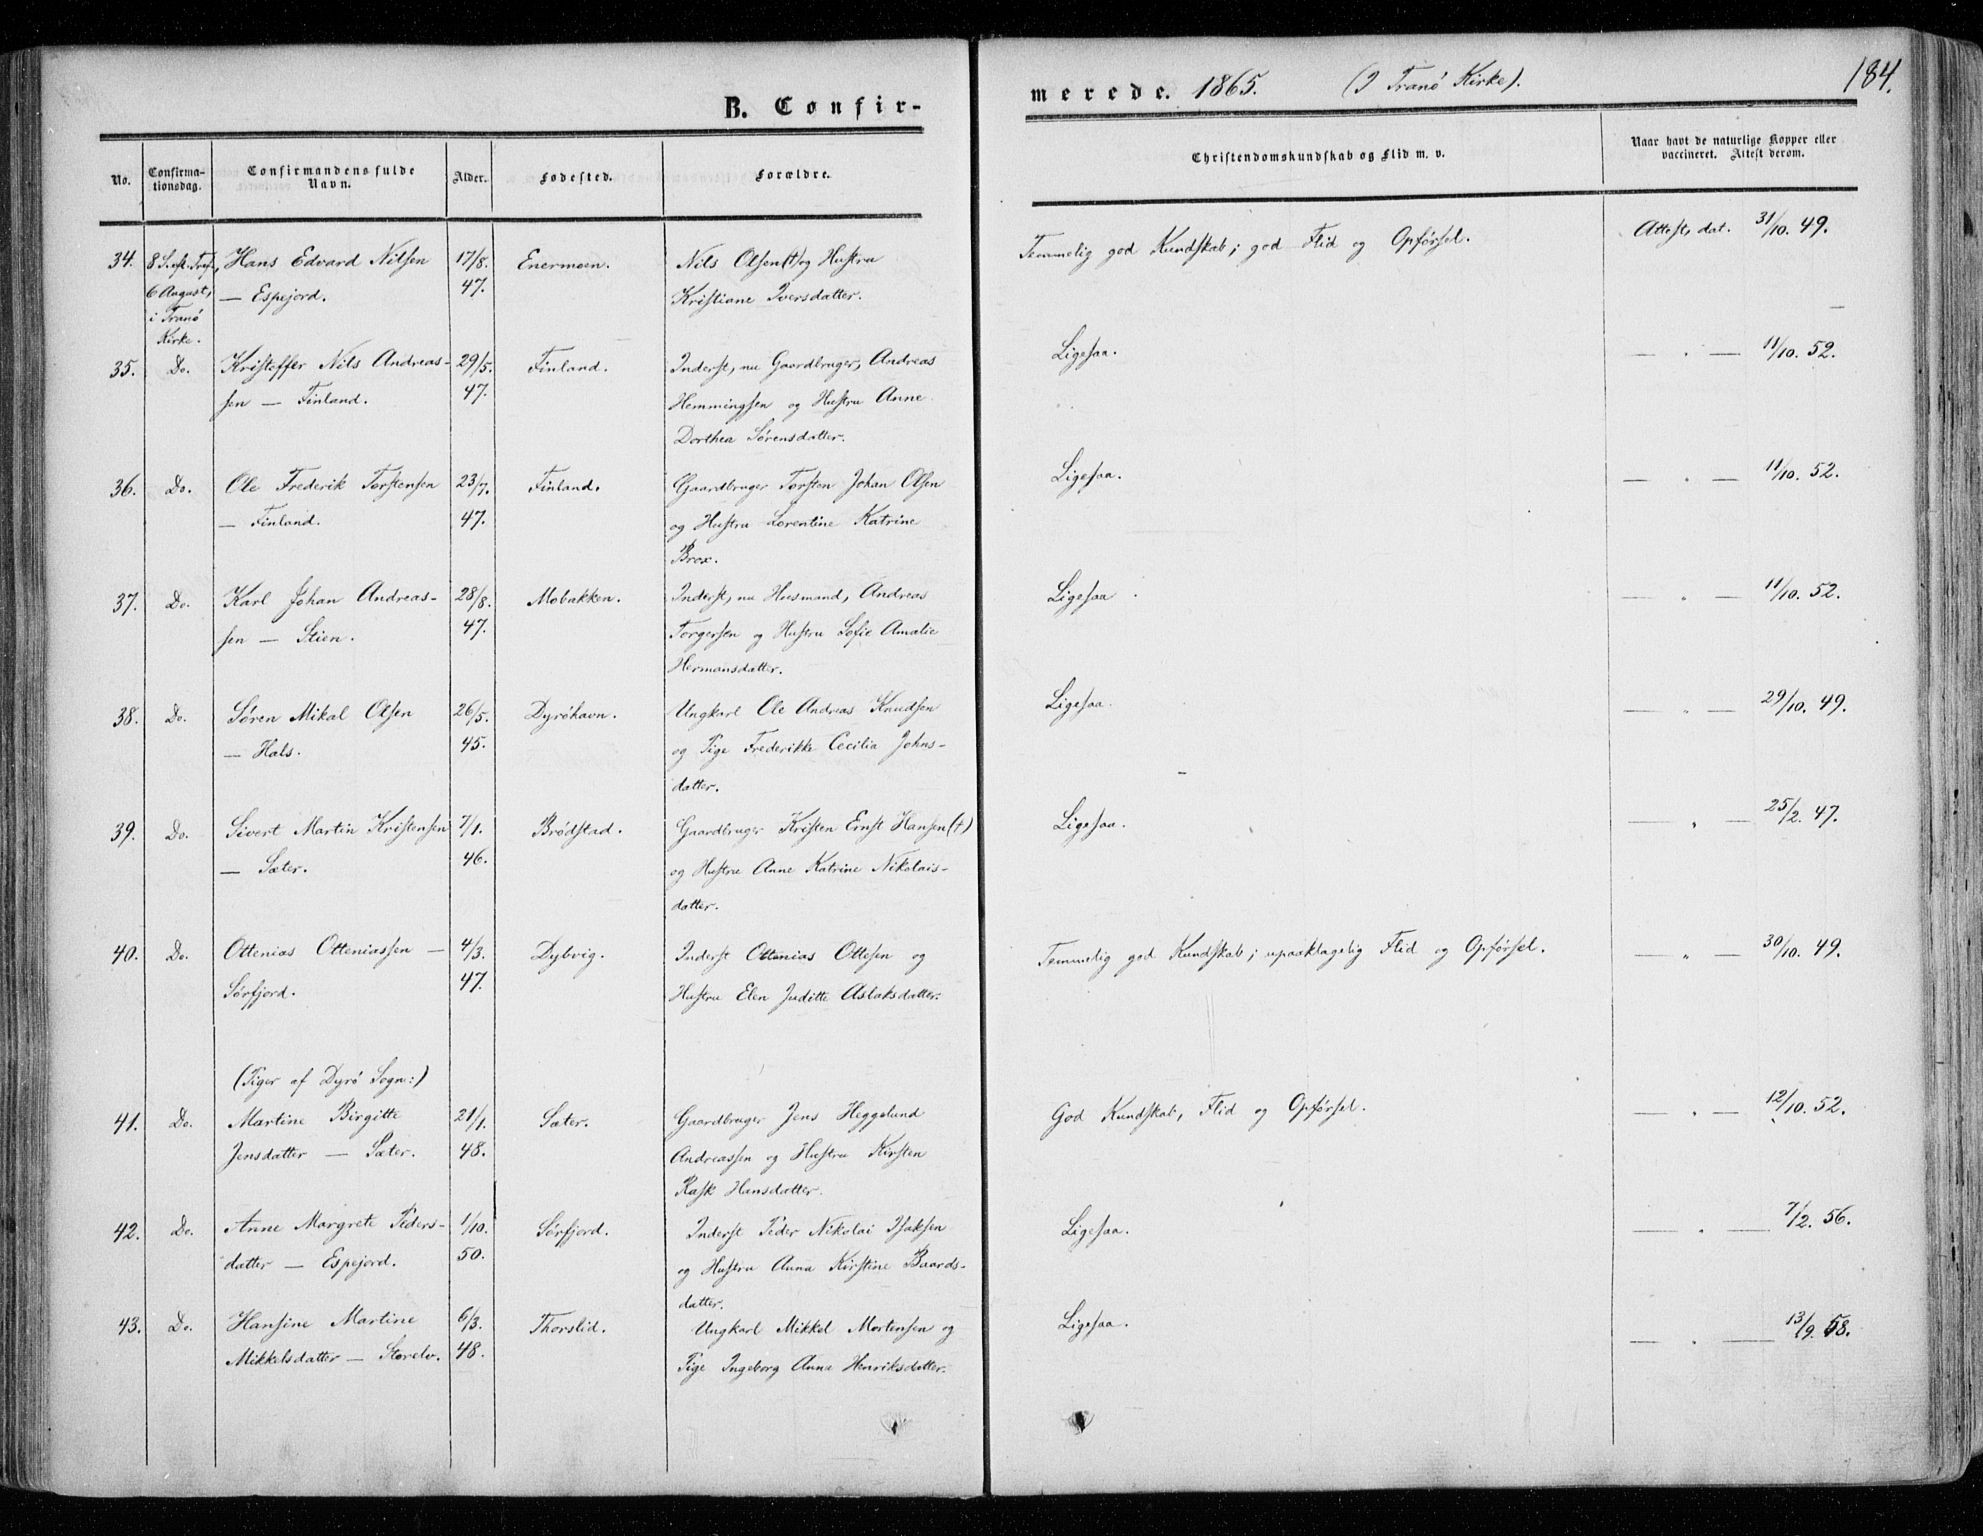 B. Confir-
merede. 1865. (I Tranø Kirke). 184.
No. Confirma-tionsdag. Confirmandens fulde Navn. Alder. Fødested. Forældre. Christendomskundskab og Flid m. v. Naar havt de naturlige Kopper eller vaccineret. Attest derom.
34. 8 S. eft. Tref., Hans Edvard Nilsen 17/8. Enermoen. Nils Olsen (†) og Hustru Temmelig god Kundskab; god Flid og Opførsel. Attest, dat. 31/10. 49.
6 August, — Espejord. 47. Kristiane Iversdatter.
i Tranø
Kirke.
35. Do. Kristoffer Nils Andreas- 29/5. Finland. Inderst, nu Gaardbruger, Andreas Ligesaa. — " — 11/10. 52.
sen — Finland. 47. Hemmingsen og Hustru Anne
Dorthea Sørensdatter.
36. Do. Ole Frederik Torstensen 23/7. Finland. Gaardbruger Torsten Johan Olsen Ligesaa. — " — 11/10. 52.
— Finland. 47. og Hustru Lorentine Katrine
Brox.
37. Do. Karl Johan Andreas- 28/8. Mobakken. Inderst, nu Husmand, Andreas Ligesaa. — " — 11/10. 52.
sen — Stien. 47. Torgersen og Hustru Sofie Amalie
Hermansdatter.
38. Do. Søren Mikal Olsen 26/5. Dyröhavn. Ungkarl Ole Andreas Knudsen Ligesaa. — " — 29/10. 49.
— Hals. 45. og Pige Frederikke Cecilia Johns-
datter.
39. Do. Sivert Martin Kristensen 7/1. Brödstad. Gaardbruger Kristen Ernst Hansen (†) Ligesaa. — " — 25/2. 47.
— Sæter. 46. og Hustru Anne Katrine Nikolais-
datter.
40. Do. Ottenias Otteniassen — 4/3. Dybvig. Inderst Ottenias Ottesen og Temmelig god Kundskab; upaaklagelig Flid og Opførsel. — " — 30/10. 49.
Sörfjord. 47. Hustru Elen Juditte Aslaksdatter.
(Piger af Dyrö Sogn:)
41. Do. Martine Birgitte 21/1. Sæter. Gaardbruger Jens Heggelund God Kundskab, Flid og Opførsel. — " — 12/10. 52.
Jensdatter — Sæter. 48. Andreassen og Hustru Kirsten
Rask Hansdatter.
42. Do. Anne Margrete Peders- 1/10. Sörfjord. Inderst Peder Nikolai Isaksen Ligesaa. — " — 7/2. 56.
datter — Espejord. 50. og Hustru Anna Kirstine Baards-
datter.
43. Do. Hansine Martine 6/3. Thorslid. Ungkarl Mikkel Mortensen og Ligesaa. — " — 13/9. 58.
Mikkelsdatter — Storelv. 48. Pige Ingeborg Anna Henriksdatter.